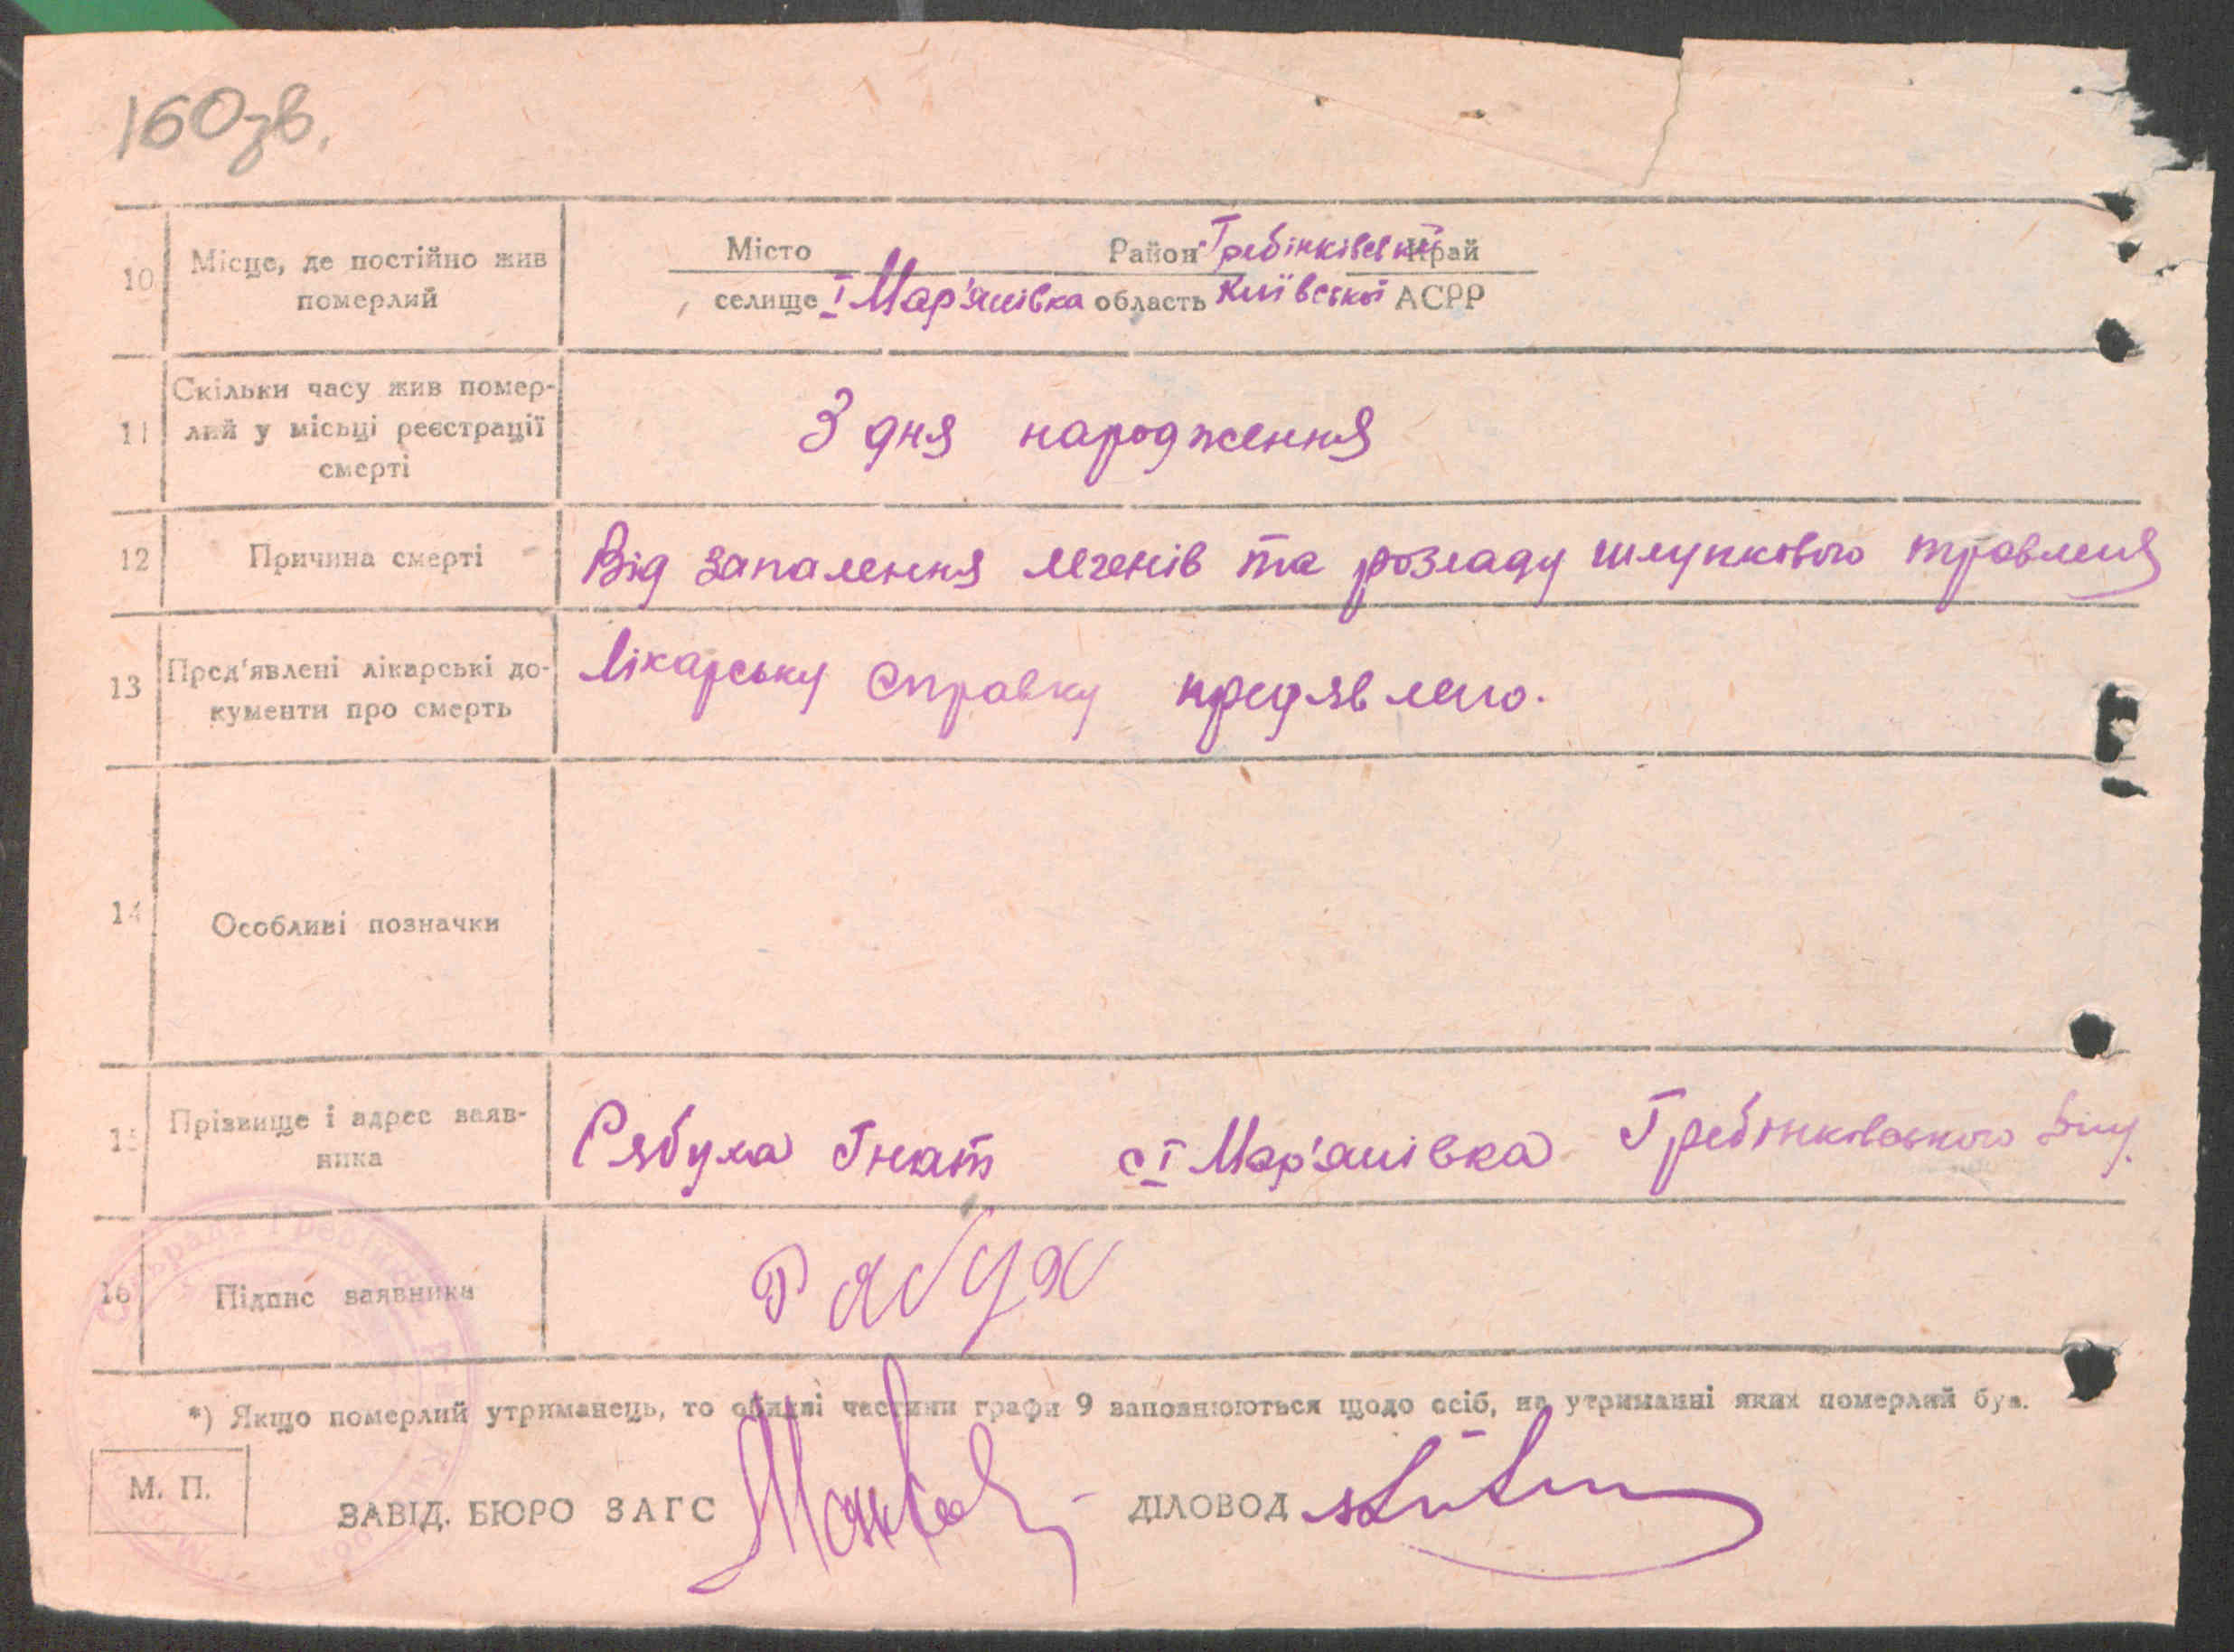 160зв.
10 Місце, де постійно жив померлий
Місто Район Гребінківський Край
селище I Мар'янівка область Київської АСРР
11 Скільки часу жив помер-
лий у місьці реєстрації
смерті
З дня народження
12 Причина смерті Від запалення легенів та розладу шлункового травленя
13 Пред'явлені лікарські до-
кументи про смерть
Лікарську справку предявлено.
14 Особливі позначки
15 Прізвище і адрес заяв-
ника
Рябуха Гнат с I Мар'янівка Гребінковського
16 Підпис заявника Рабух
*) Якщо померлий утриманець, то обидві частини графи 9 заповнюються щодо осіб, на утриманні яких померлий був.
М. П.
ЗАВІД. БЮРО ЗАГС ДІЛОВОД